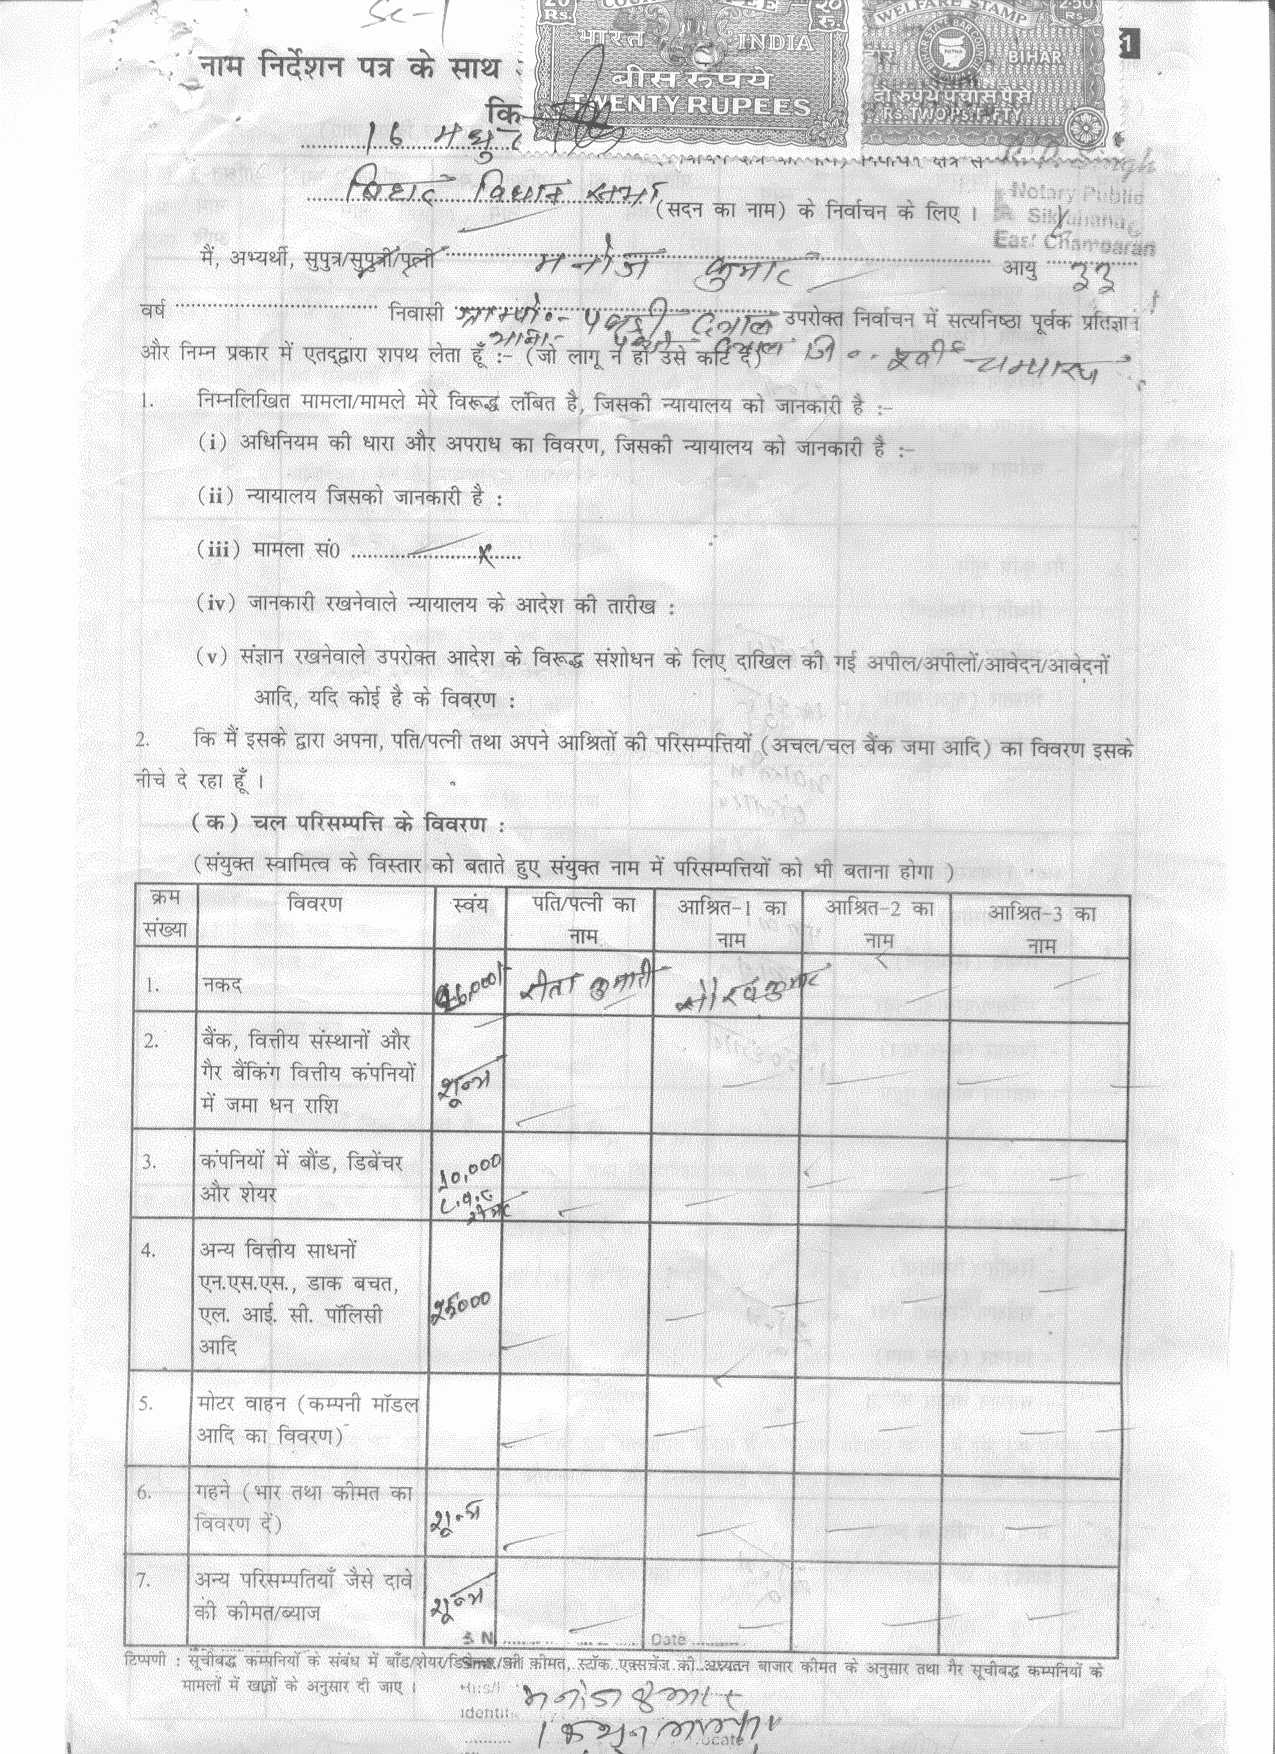 Sc-1
20 RS. COURT FEE 20 रु.
भारत INDIA
बीस रुपये
TWENTY RUPEES
WELFARE STAMP 250 Rs.
BIHAR
दो रुपये पचास पैसे
RS. TWO FIFTY
1
नाम निर्देशन पत्र के साथ
कि
16 मधुर
बिहार विधान सभा (सदन का नाम) के निर्वाचन के लिए ।
Notary Public
Sikrahana
East Champaran
मैं, अभ्यर्थी, सुपुत्र/सुपुत्री/पत्नी मनोज कुमार आयु ३३
वर्ष निवासी ग्राम पो०- उपरोक्त निर्वाचन में सत्यनिष्ठा पूर्वक प्रतिज्ञान
और निम्न प्रकार में एतद्द्वारा शपथ लेता हूँ :- (जो लागू न हो उसे काट दें) जि०- पूर्वी चम्पारण
1. निम्नलिखित मामला/मामले मेरे विरूद्ध लंबित है, जिसकी न्यायालय को जानकारी है :-
(i) अधिनियम की धारा और अपराध का विवरण, जिसकी न्यायालय को जानकारी है :-
(ii) न्यायालय जिसको जानकारी है :
(iii) मामला सं0 .......... x
(iv) जानकारी रखनेवाले न्यायालय के आदेश की तारीख :
(v) संज्ञान रखनेवाले उपरोक्त आदेश के विरूद्ध संशोधन के लिए दाखिल की गई अपील/अपीलों/आवेदन/आवेदनों
आदि, यदि कोई है के विवरण :
2. कि मैं इसके द्वारा अपना, पति/पत्नी तथा अपने आश्रितों की परिसम्पत्तियों (अचल/चल बैंक जमा आदि) का विवरण इसके
नीचे दे रहा हूँ ।
(क) चल परिसम्पत्ति के विवरण :
(संयुक्त स्वामित्व के विस्तार को बताते हुए संयुक्त नाम में परिसम्पत्तियों को भी बताना होगा )
क्रम संख्या विवरण स्वंय पति/पत्नी का नाम आश्रित-1 का नाम आश्रित-2 का नाम आश्रित-3 का नाम
1. नकद रीता कुमारी सौरव कुमार
2. बैंक, वित्तीय संस्थानों और
गैर बैंकिंग वित्तीय कंपनियों शून्य
में जमा धन राशि
3. कंपनियों में बौंड, डिबेंचर 10,000
और शेयर
4. अन्य वित्तीय साधनों
एन.एस.एस., डाक बचत, 25000
एल. आई. सी. पॉलिसी
आदि
5. मोटर वाहन (कम्पनी मॉडल
आदि का विवरण)
6. गहने (भार तथा कीमत का शून्य
विवरण दें)
7. अन्य परिसम्पतियाँ जैसे दावे शून्य
की कीमत/ब्याज
S N .......... Date ..........
टिप्पणी : सूचीबद्ध कम्पनियों के संबंध में बॉंड/शेयर/डिबेंचर/की कीमत, स्टॉक एक्सचेंज की अध्यतन बाजार कीमत के अनुसार तथा गैर सूचीबद्ध कम्पनियों के
मामलों में खातों के अनुसार दी जाए ।
मनोज कुमार